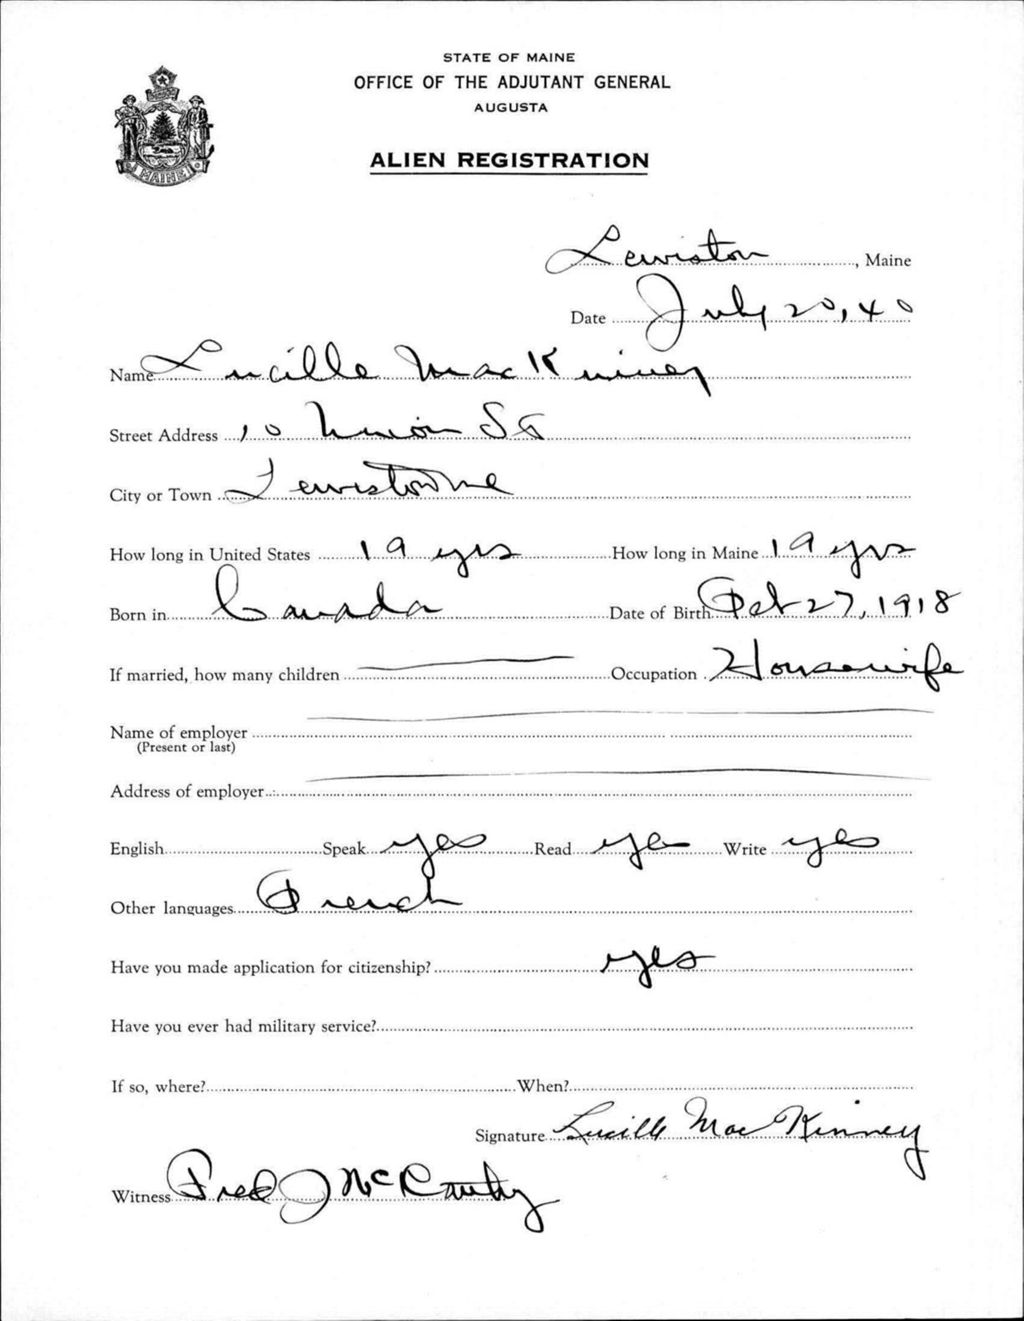 STATE OF MAINE
OFFICE OF THE ADJUTANT GENERAL
AUGUSTA
ALIEN REGISTRATION
MAINE
Lewiston, Maine
Date July 20, 40
Name Lucille MacKinney
Street Address 10 Union St
City or Town Lewiston Me
How long in United States 19 yrs How long in Maine 19 yrs
Born in Canada Date of Birth 27, 1918
If married, how many children Occupation Housewife
Name of employer
(Present or last)
Address of employer
English Speak yes Read yes Write yes
Other languages French
Have you made application for citizenship? yes
Have you ever had military service?
If so, where? When?
Signature Lucille MacKinney
Witness Fred J McCarthy